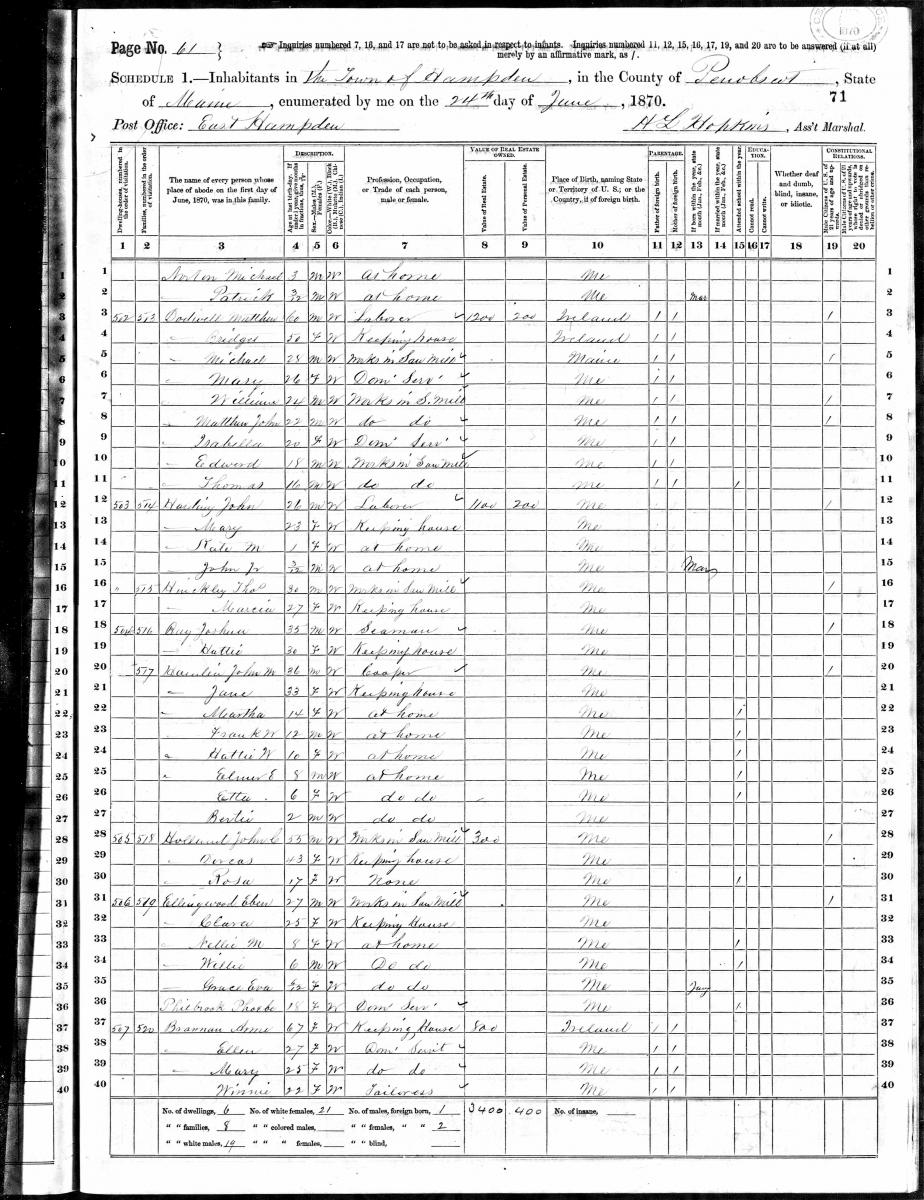 Page No. 61
Inquiries numbered 7, 16, and 17 are not to be asked in respect to infants. Inquiries numbered 11, 12, 15, 16, 17, 19, and 20 are to be answered (if at all)
merely by an affirmative mark, as /.
SCHEDULE 1.—Inhabitants in the Town of Hampden, in the County of Penobscot, State
of Maine, enumerated by me on the 24th day of June, 1870.
71
Post Office: East Hampden
H L Hopkins, Ass't Marshal.
Dwelling-houses, numbered in the order of visitation.
Families, numbered in the order of visitation.
The name of every person whose place of abode on the first day of June, 1870, was in this family.
DESCRIPTION.
Profession, Occupation, or Trade of each person, male or female.
VALUE OF REAL ESTATE OWNED.
Value of Real Estate.
Value of Personal Estate.
Place of Birth, naming State or Territory of U. S.; or the Country, if of foreign birth.
PARENTAGE.
Father of foreign birth.
Mother of foreign birth.
If born within the year, state month (Jan., Feb., &c.)
If married within the year, state month (Jan., Feb., &c.)
Attended school within the year.
EDUCATION.
Cannot read.
Cannot write.
Whether deaf and dumb, blind, insane, or idiotic.
CONSTITUTIONAL RELATIONS.
1 2 3 4 5 6 7 8 9 10 11 12 13 14 15 16 17 18 19 20
1 Norton Michael 3 M W at home Me 1
2 Patrick 3/12 M W at home Me Mar 2
3 502 513 Dodwell Matthew 60 M W Laborer 1200 200 Ireland / / / 3
4 " Bridget 50 F W Keeping house Ireland / / 4
5 " Michael 28 M W Works in Saw Mill Maine / / / 5
6 " Mary 26 F W Dom' Serv' Me / / 6
7 " William 24 M W Works in S. Mill Me / / / 7
8 " Matthew John 22 M W do do Me / / / 8
9 " Isabella 20 F W Dom' Serv' Me / / 9
10 " Edward 18 M W Works in Saw Mill Me / / 10
11 " Thomas 16 M W do do Me / / / 11
12 503 514 John 26 M W Laborer 1100 200 Me / 12
13 " Mary 23 F W Keeping house Me 13
14 " Kate M 1 F W at home Me 14
15 " John Jr 3/12 M W at home Me Mar 15
16 " 515 Hinckley Thos 30 M W Works in Saw Mill Me / 16
17 " Marcia 27 F W Keeping house Me 17
18 504 516 Ray Joshua 35 M W Seaman Me / 18
19 " Hattie 30 F W Keeping house Me 19
20 517 Hamlin John M 36 M W Cooper Me / 20
21 " Jane 33 F W Keeping house Me 21
22 " Martha 14 F W at home Me / 22
23 " Frank W 12 M W at home Me / 23
24 " Hattie W 10 F W at home Me / 24
25 " Elmer E 8 M W at home Me / 25
26 Etta 6 F W do do Me / 26
27 Bertie 2 M W do do Me 27
28 505 518 John C 55 M W Works in Saw Mill 300 Me / 28
29 " Dorcas 43 F W Keeping house Me 29
30 " Rosa 17 F W None Me / 30
31 506 519 Ellingwood Eben 27 M W Works in Saw Mill Me / 31
32 " Clara 25 F W Keeping House Me 32
33 " Nellie M 8 F W at home Me / 33
34 " Willie 6 M W Do do Me / 34
35 " Grace Eva F W do do Me Jany 35
36 Philbrook Phoebe 18 F W Dom' Serv' Me / 36
37 507 520 Brannan 67 F W Keeping House 800 Ireland / / 37
38 " Ellen 27 F W Dom' Servt Me / / 38
39 " Mary 25 F W do do Me / / 39
40 Winnie 22 F W Tailoress Me / / 40
No. of dwellings, 6 No. of white females, 21 No. of males, foreign born, 1 3400 400 No. of insane,
" " families, 8 " " colored males, " " females, " " 2
" " white males, 19 " " " females, " " blind,